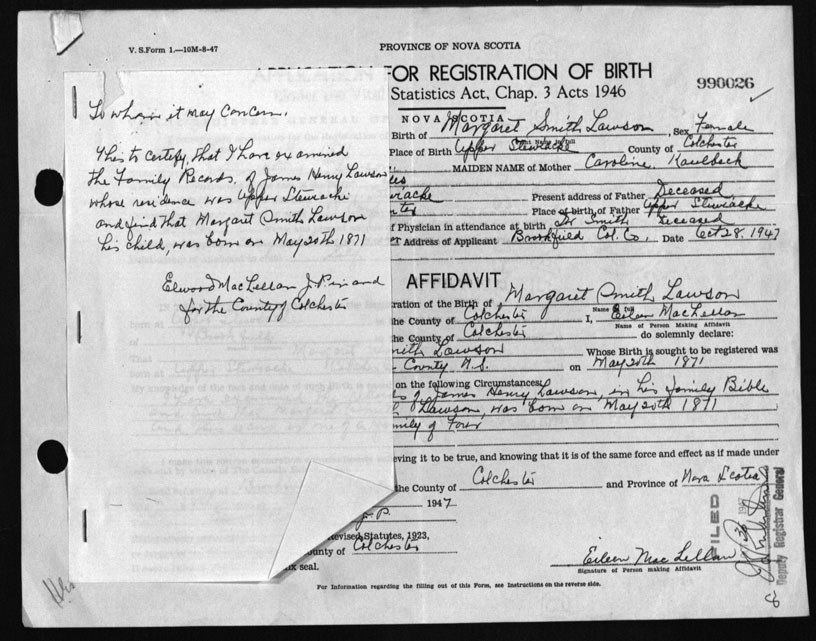 V. S. Form 1.—10M-8-47
PROVINCE OF NOVA SCOTIA
FOR REGISTRATION OF BIRTH
990026
Statistics Act, Chap. 3 Acts 1946
NOVA SCOTIA
Birth of Margaret Smith Lawson, Sex Female
Place of Birth Upper Stewiacke County of Colchester
MAIDEN NAME OF Mother Caroline Kaulback
Present address of Father Deceased
Place of birth of Father Upper Stewiacke
f Physician in attendance at birth Dr Smith Deceased
Address of Applicant Brookfield Col. Co. Date Oct 28, 1947
To whom it may Concern.
This to certify, that I have examined
the Family Records, of James Henry Lawson
whose residence was Upper Stewiacke
and find that Margaret Smith Lawson
his child, was born on May 20th 1871
Elwood MacLellan J.P in and
for the County of Colchester
AFFIDAVIT
ration of the Birth of Margaret Smith Lawson
Name in full
the County of Colchester I, Eileen MacLellan
Name of Person Making Affidavit
the County of Colchester do solemnly declare:
Smith Lawson Whose Birth is sought to be registered was
County N.S. on May 20th 1871
on the following Circumstances:
of James Henry Lawson, in his family Bible
Lawson, was born on May 20th 1871
mily of Four
eving it to be true, and knowing that it is of the same force and effect as if made under
the County of Colchester and Province of Nova Scotia
1947
J. P.
Revised Statutes, 1923,
ounty of Colchester
ix seal.
Eileen MacLellan
Signature of Person making Affidavit
FILED
1947
Deputy Registrar General
For Information regarding the filling out of this Form, see Instructions on the reverse side.
8